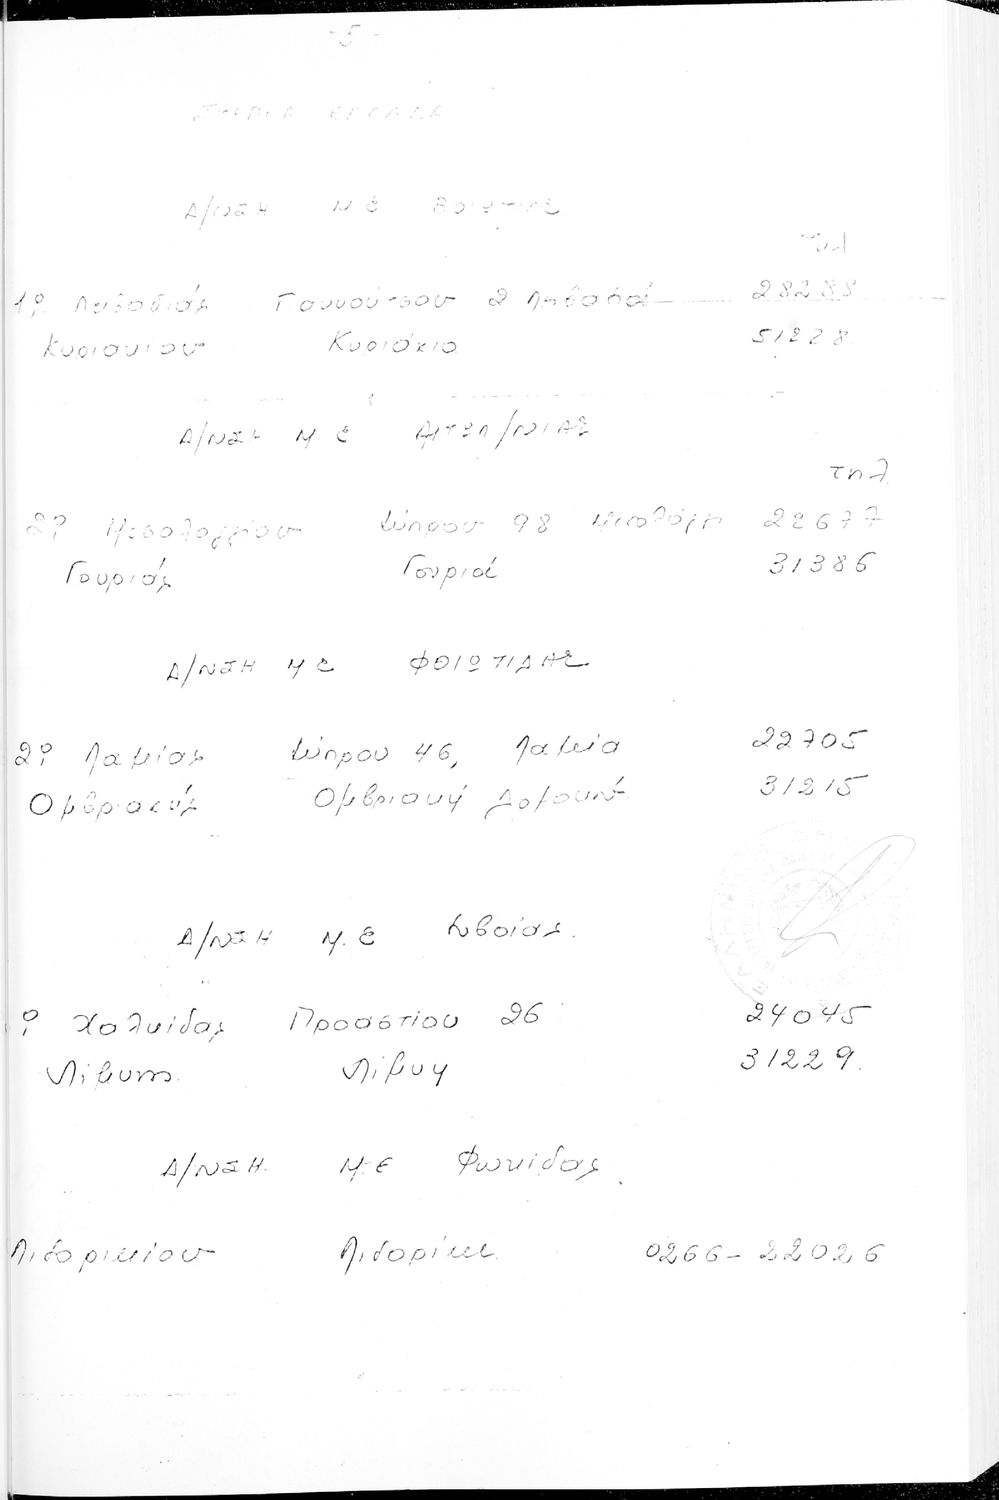 -5-
ΣΤΕΡΕΑ ΕΛΛΑΔΑ
Δ/ΝΣΗ Μ Ε Βοιωτιας
τηλ
1ο Λειβαδιάς 2 Λειβαδιά 28288
Κυριακίου Κυριάκιο 51228
Δ/ΝΣΗ Μ Ε ΑΙΤΩΛ/ΝΙΑΣ
τηλ
2ο Μεσολογγίου Κύπρου 98 Μεσολόγγι 22677
Γουριάς Γουριά 31386
Δ/ΝΣΗ Μ Ε ΦΘΙΩΤΙΔΑΣ
2ο Λαμίας Κύπρου 46, Λαμία 22705
Ομβριακής Ομβριακή Δομοκού 31215
Δ/ΝΣΗ Μ.Ε Ευβοίας.
ο Χαλκίδας Προαστίου 26 24045
Λίμνης Λίμνη 31229.
Δ/ΝΣΗ. Μ.Ε Φωκίδας.
Λιδορικίου Λιδορίκι 0266-22026